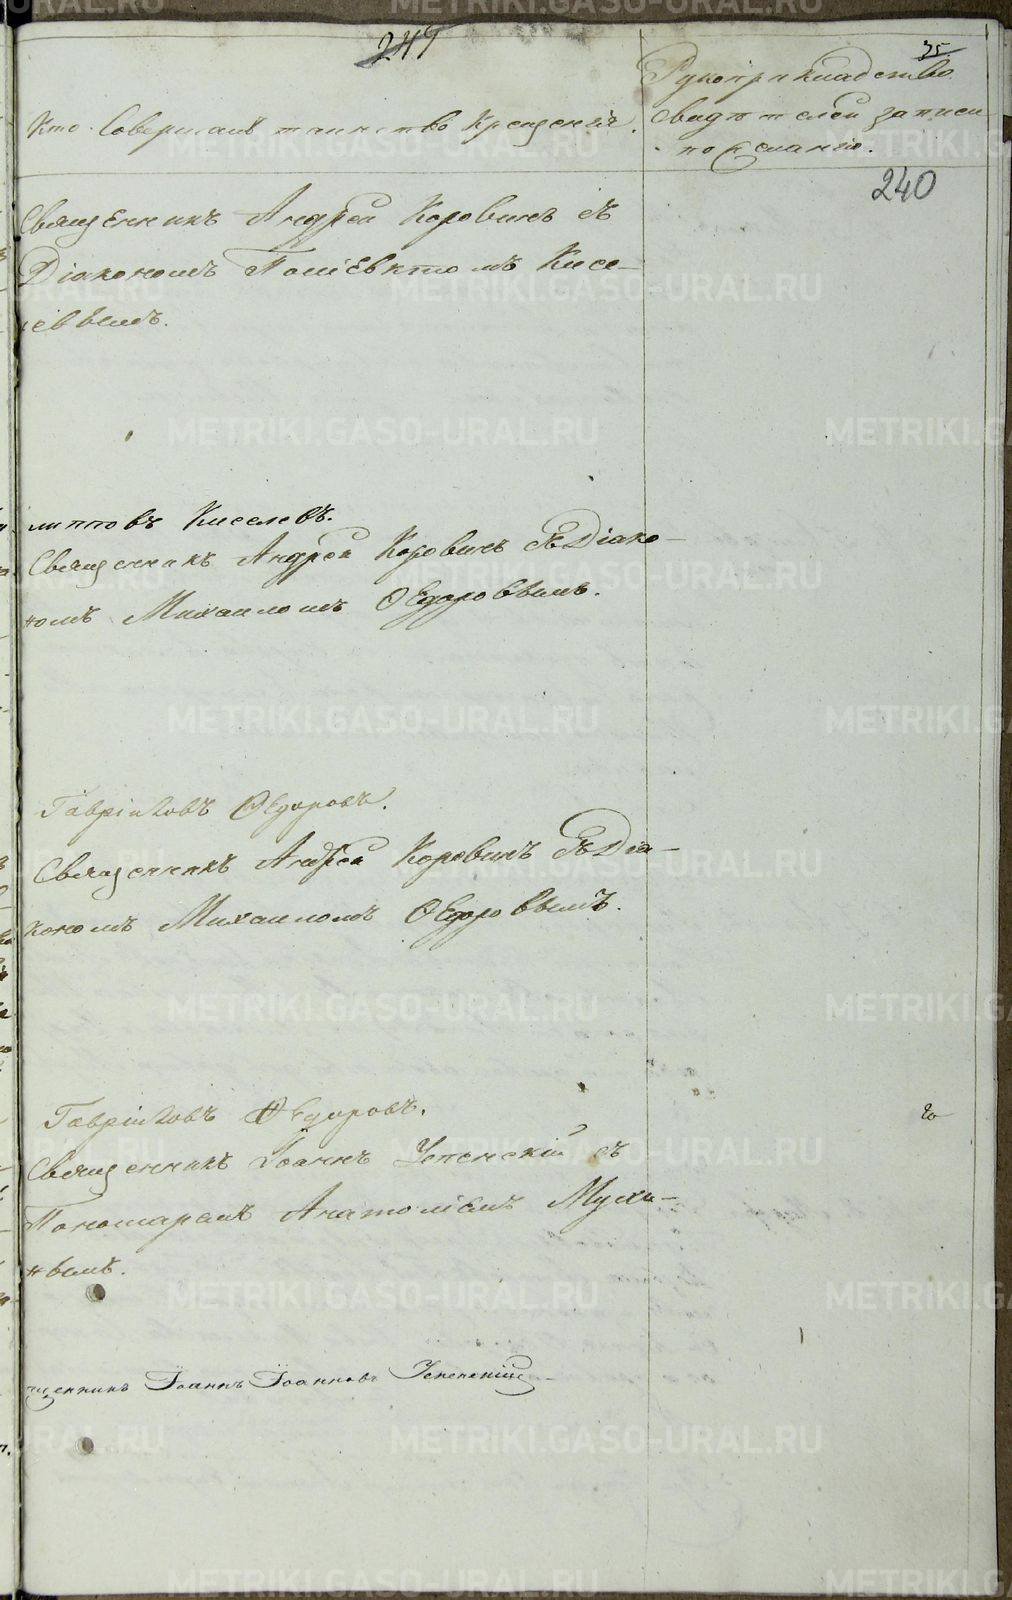 249
75
Кто Совершалъ таинство Крещенія.
Рукоприкладство
свидѣтелей записи
по желанію.
240
Священникъ Андрей Коровинъ съ
Діакономъ Поліевктомъ Кисе-
левымъ.
липповъ Киселевъ.
Священникъ Андрей Коровинъ съ Діако-
номъ Михаиломъ Ѳедоровымъ.
Гавріиловъ Ѳедоровъ.
Священникъ Андрей Коровинъ съ Діа-
кономъ Михаиломъ Ѳедоровымъ.
Гавріиловъ Ѳедоровъ.
Священникъ Іоаннъ Успенскій съ
Пономаремъ Анатоліемъ Мухи-
нымъ.
щенникъ Іоаннъ Іоанновъ Успенскій
METRIKI.GASO-URAL.RU